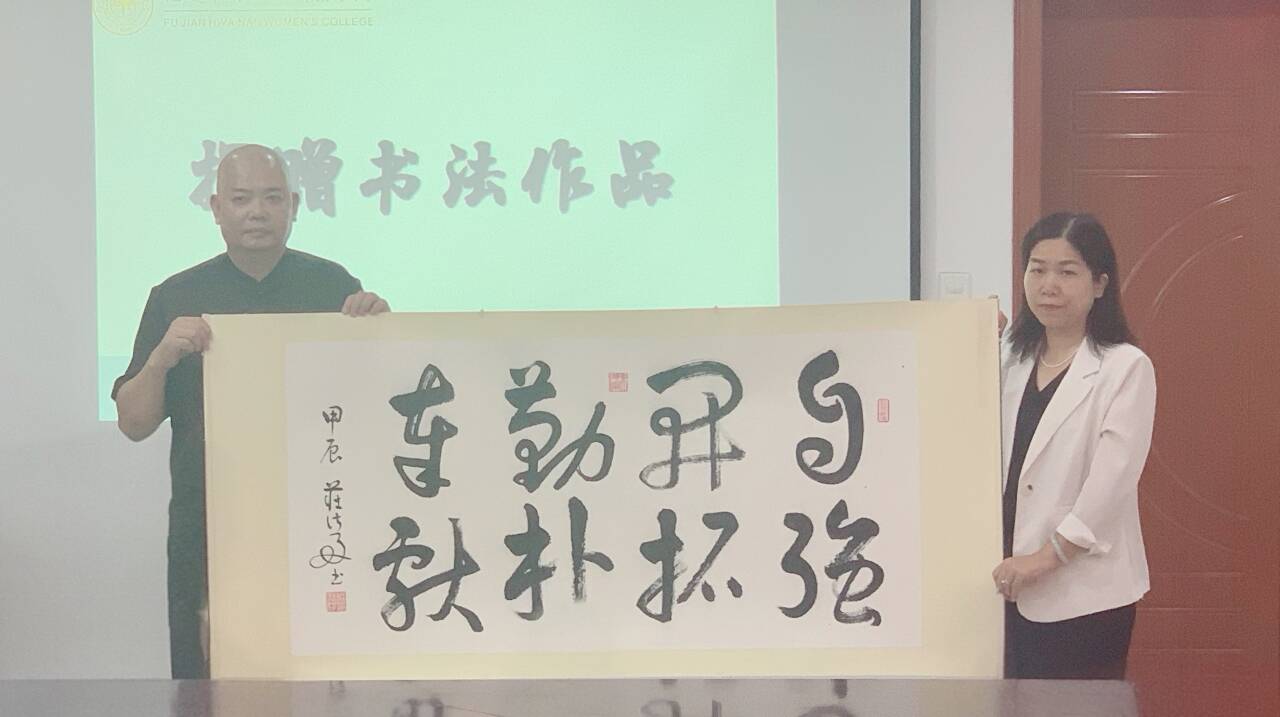 FU JIAN HWA NAN WOMEN'S COLLEGE
捐赠书法作品
自强
開拓
勤朴
奉獻
甲辰 莊 书